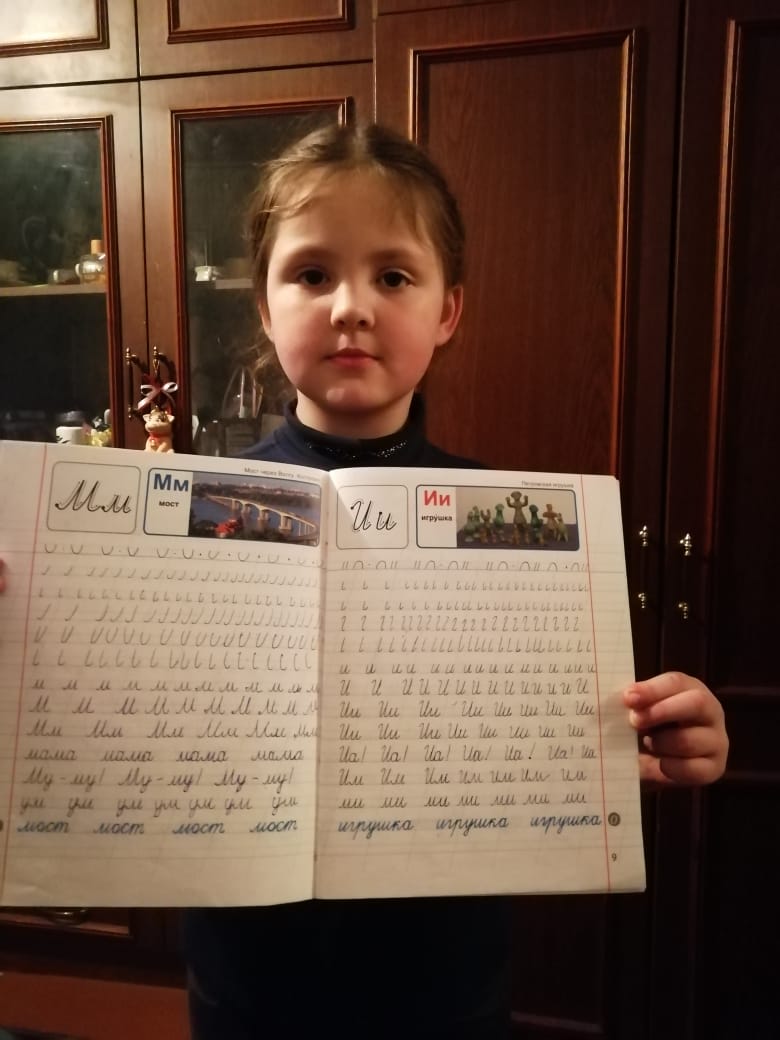 Мост через Волгу. Кострома
Мм
Мм
мост
м м м м м м м м м м м
М М М М М М М М М М
Мм Мм Мм Мм Мм Мм
мама мама мама мама
Му-му! Му-му! Му-му!
ум ум ум ум ум ум ум
мост мост мост мост
Петровская игрушка
Ии
Ии
игрушка
и и и и и и и и и и и и и
И И И И И И И И И И И И
Ии Ии Ии Ии Ии Ии Ии Ии
Ии Ии Ии Ии Ии Ии Ии Ии
Иа! Иа! Иа! Иа! Иа! Иа! Иа
Им Им Им Им Им Им Им
ми ми ми ми ми ми ми
игрушка игрушка игрушка
9